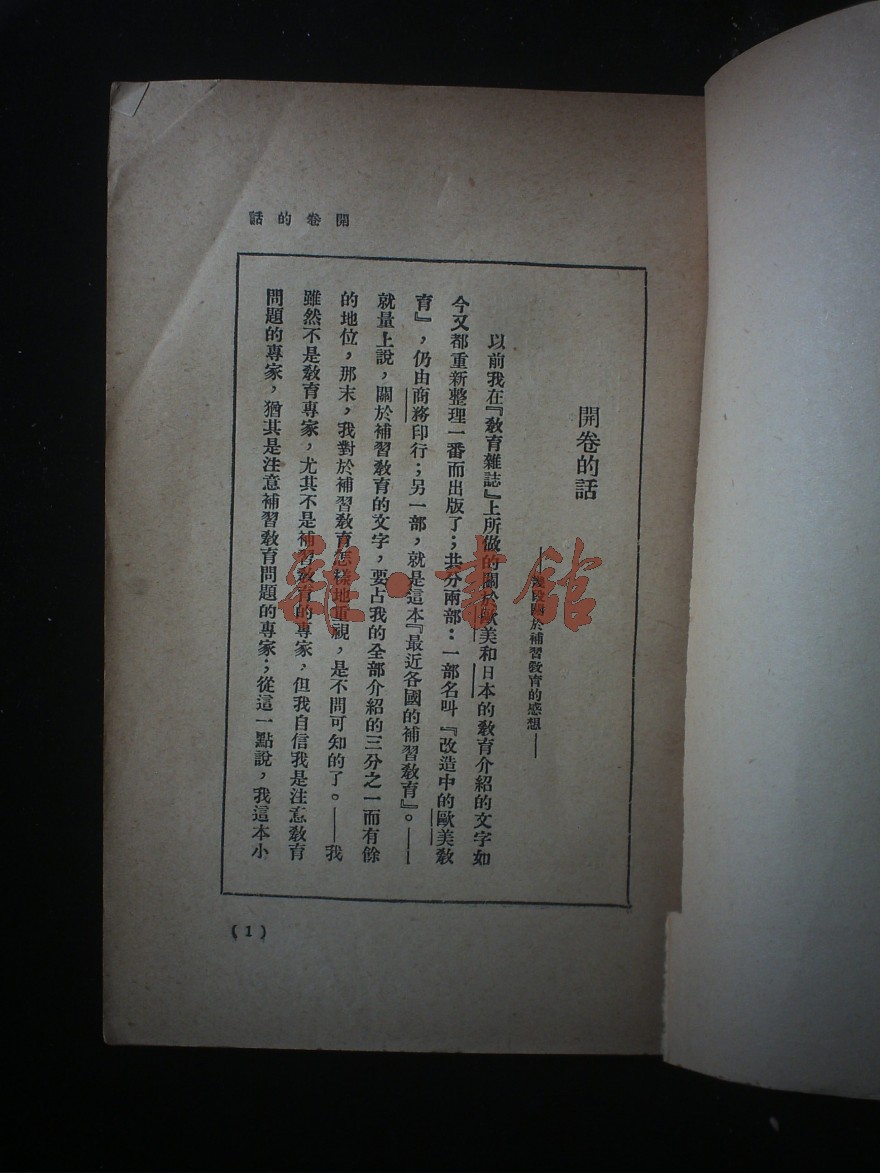 開卷的話
開卷的話
——幾段關於補習教育的感想——
以前我在『教育雜誌』上所做的關於歐美和日本的教育介紹的文字如
今又都重新整理一番而出版了；共分兩部：一部名叫『改造中的歐美教
育』，仍由商務印行；另一部，就是這本『最近各國的補習教育』。——
就量上說，關於補習教育的文字，要占我的全部介紹的三分之一而有餘
的地位，那末，我對於補習教育怎樣地重視，是不問可知的了。——我
雖然不是教育專家，尤其不是補習教育的專家，但我自信我是注意教育
問題的專家，猶其是注意補習教育問題的專家；從這一點說，我這本小
(1)
雜·書館